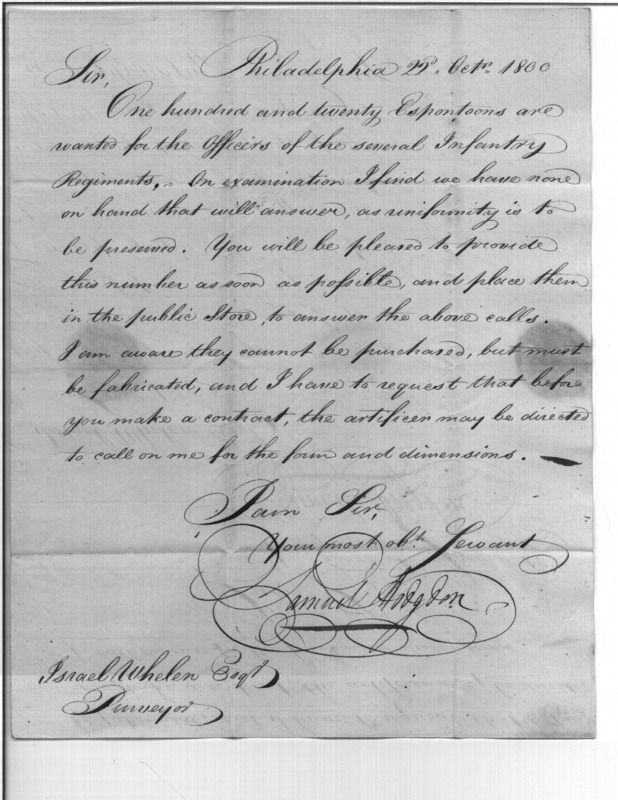 Sir, Philadelphia 22d. Octr. 1800
One hundred and twenty Espontoons are
wanted for the Officers of the several Infantry
Regiments,. On examination I find we have none
on hand that will answer, as uniformity is to
be preserved. You will be pleased to provide
this number as soon as possible, and place them
in the public Store, to answer the above calls.
I am aware they cannot be purchased, but must
be fabricated, and I have to request that before
you make a contract, the artificer may be directed
to call on me for the form and dimensions.
I am Sir,
Your most obt. Servant
Samuel Hodgdon
Israel Whelen Esqr
Purveyor